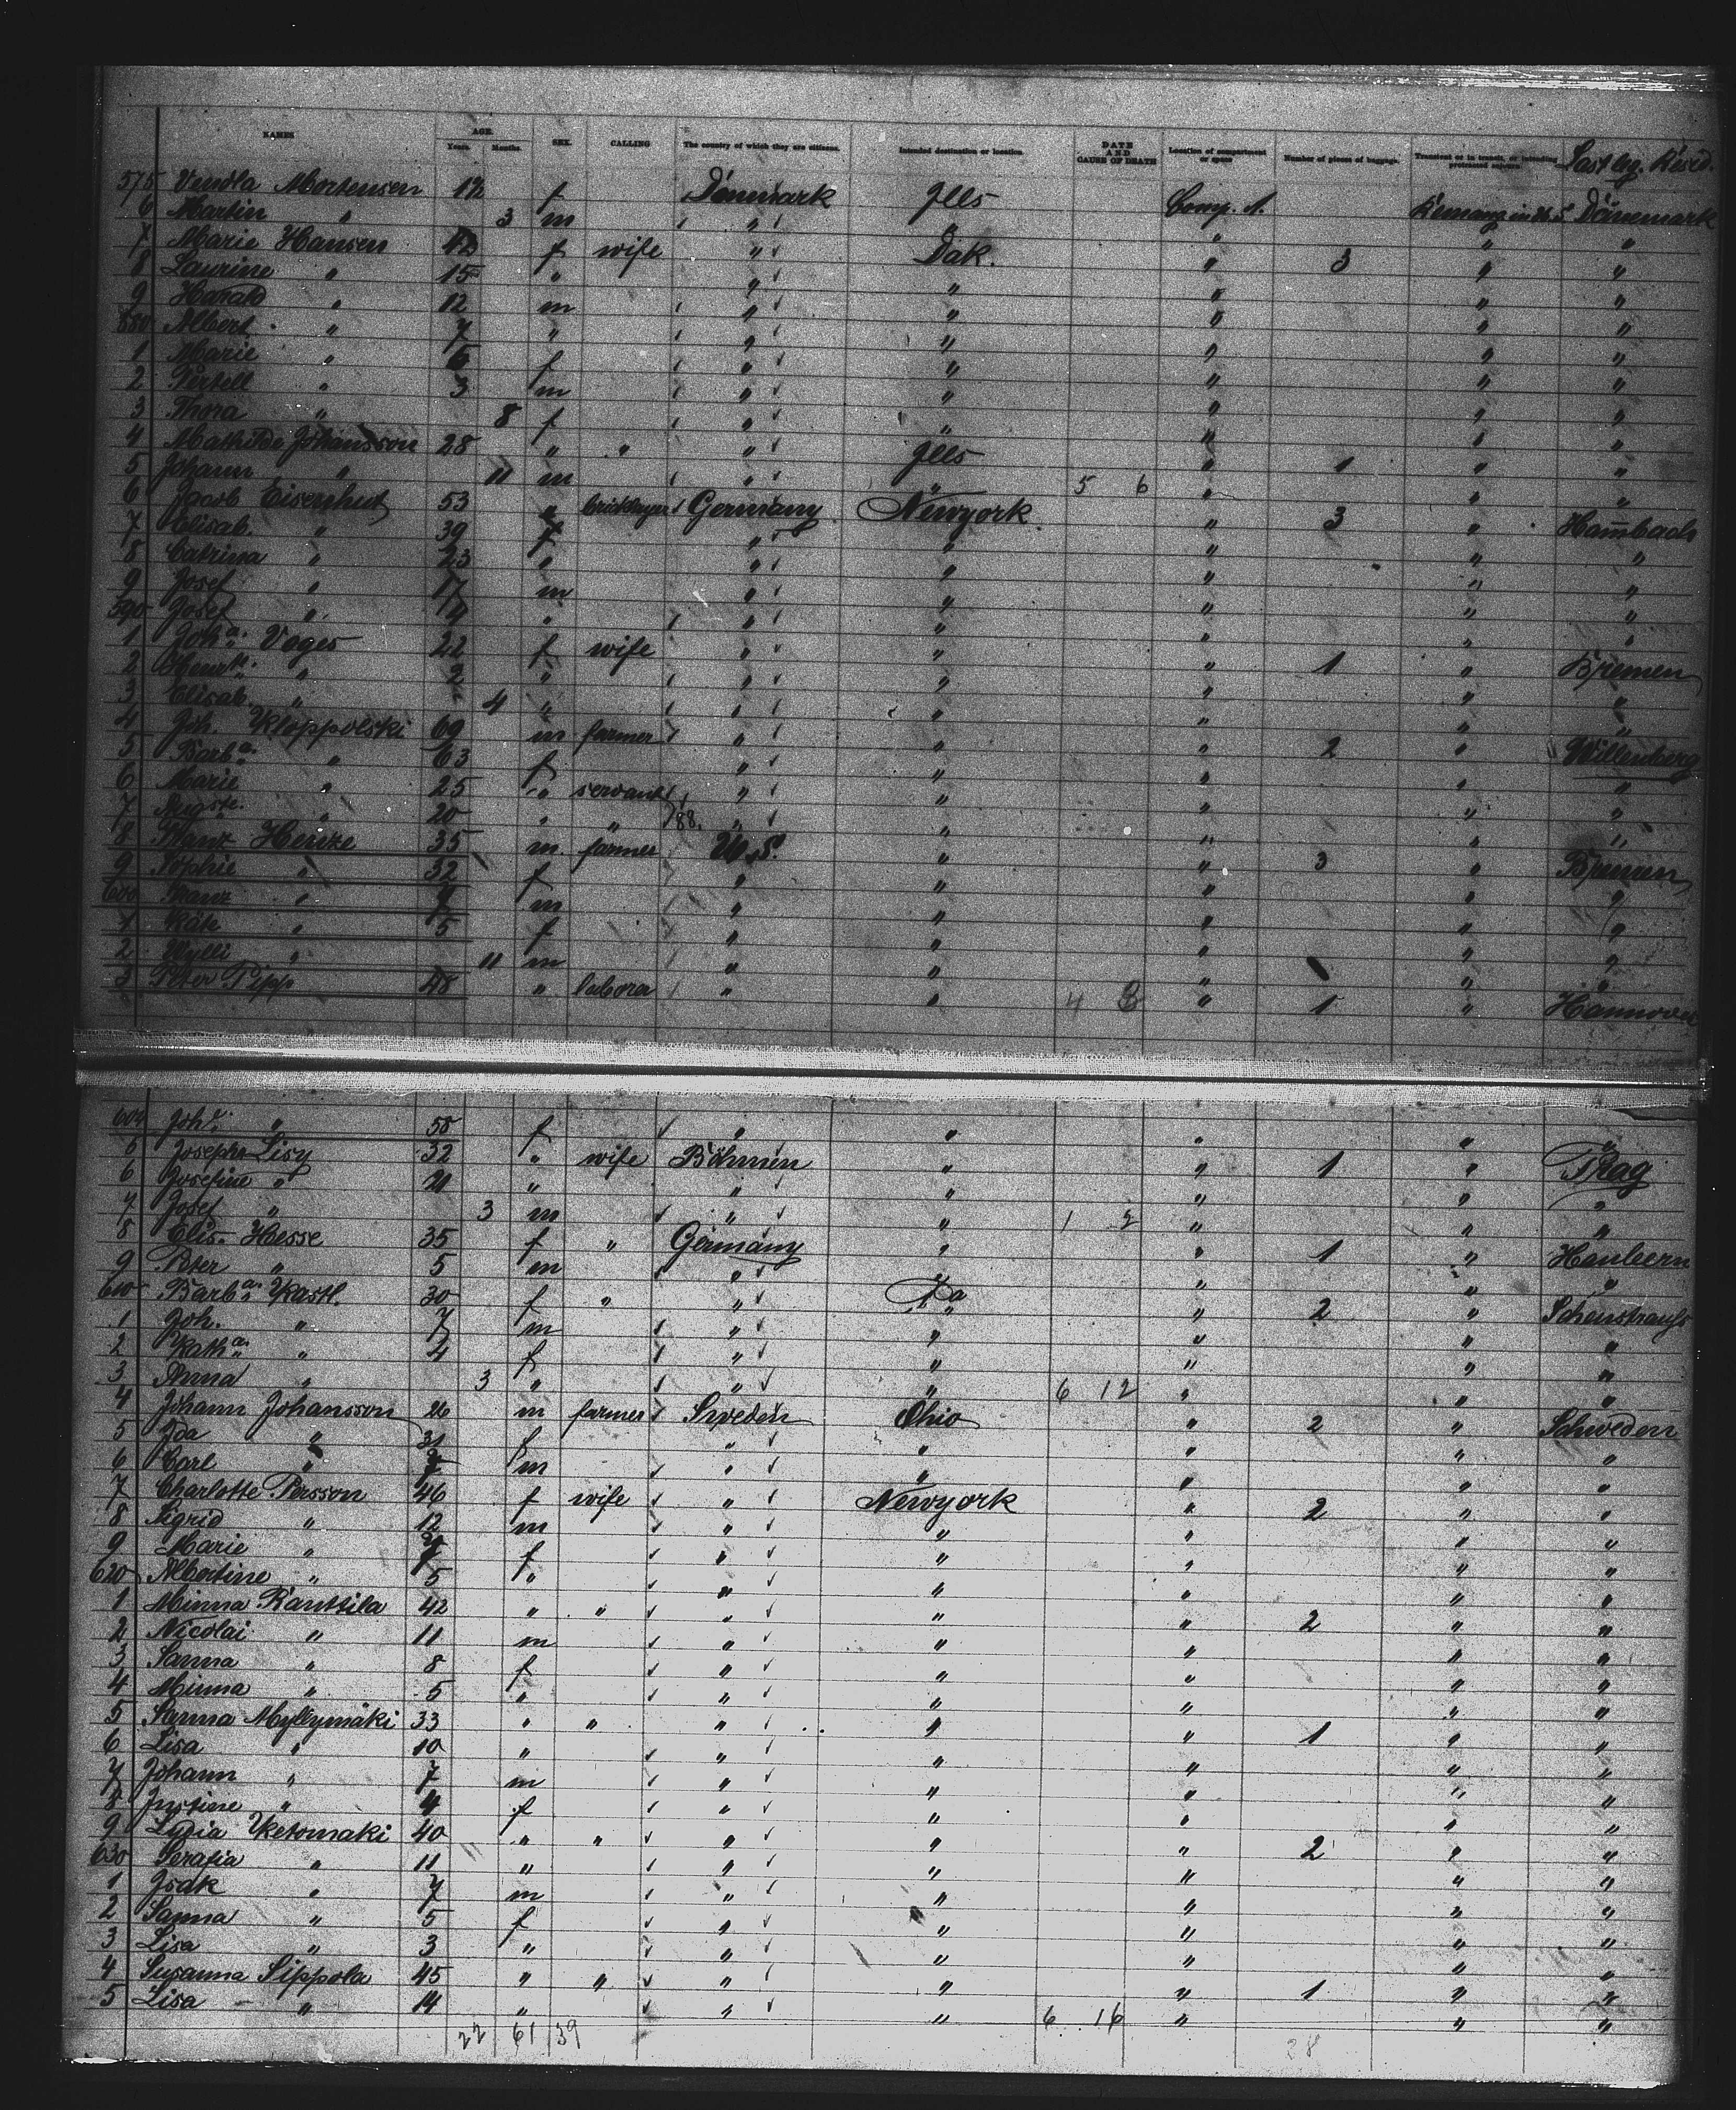 NAMES AGE. Years. Months. SEX. CALLING The country of which they are citizens. Intended destination or location. DATE AND CAUSE OF DEATH Location of compartment or space Number of pieces of baggage. Transient or in transit, or intending protracted sojourn. Last leg. Resid.
575 Mortensen 12 f Dänmark Jlls Comp. A. Dänemark
6 Martin " 3 m " " " " "
7 Marie Hansen 42 f wife " Dak. " 3 " "
8 Laurine " 15 " " " " " "
9 Harald " 12 m " " " " "
580 Albert " 7 " " " " " "
1 Marie " 6 f " " " " "
2 " 3 m " " " " "
3 Thora " 8 f " " " " "
4 Mathilde Johansson 28 " " " Jlls " 1 " "
5 Johann " 11 m " " 5 6 " " "
6 Jacob Eisenhut 53 " bricklayer Germany Newyork. " 3 " Hambach
7 Elisab. " 39 f " " " " "
8 Catrina " 23 " " " " " "
9 Josef " 17 m " " " " "
590 Josef " 14 " " " " " "
1 Joha. Voges 22 f wife " " " 1 " Bremen
2 " 2 " " " " " "
3 Elisab. " 4 " " " " " "
4 Joh. Kloppolski 69 m farmer " " " 2 " Willenberg
5 Barba. " 63 f " " " " "
6 Marie " 25 " servant " " " " "
7 Auguste. " 20 " " 88. " " " " "
8 Franz Heinze 35 m farmer U.S. " " 3 " Bremen
9 Sophie " 32 f " " " " "
600 Franz " 7 m " " " " "
1 Käte " 5 f " " " " "
2 Wylli " 11 m " " " " "
3 Peter Pipp 48 " labora " " 4 3 " 1 " Hannover
604 Johe. " 58 f " " " " "
5 Josepha Lisy 32 " wife Böhmen " " 1 " Prag
6 Josefine " 21 " " " " " "
7 Josef " 3 m " " 1 2 " " "
8 Elis. Hesse 35 f " Germany " " 1 "
9 Peter " 5 m " " " " "
610 Barba. Kastl. 30 f " " Pa " 2 "
1 Joh. " 7 m " " " " "
2 Katha. " 4 f " " " " "
3 Anna " 3 " " " 6 12 " " "
4 Johann Johansson 26 m farmer Sweden Ohio " 2 " Schweden
5 Ida " 31 f " " " " "
6 Carl " m " " " " "
7 Charlotte Persson 46 f wife " Newyork " 2 " "
8 Sigrid " 12 m " " " " "
9 Marie " f " " " " "
620 Albertine " 5 " " " " " "
1 Minna Ranttila 42 " " " " " 2 " "
2 Nicolai " 11 m " " " " "
3 Sanna " 8 f " " " " "
4 Minna " 5 " " " " " "
5 Sanna Myllymäki 33 " " " " " 1 " "
6 Lisa " 10 " " " " " "
7 Johann " 7 m " " " " "
8 Justine " 4 f " " " " "
9 Lydia Ketomaki 40 " " " " " 2 " "
630 Serafia " 11 " " " " " "
1 Isak " 7 m " " " " "
2 Sanna " 5 f " " " " "
3 Lisa " 3 " " " " " "
4 Susanna Sippola 45 " " " " " 1 " "
5 Lisa " 14 " " " 6 16 " " "
22 61 39 28